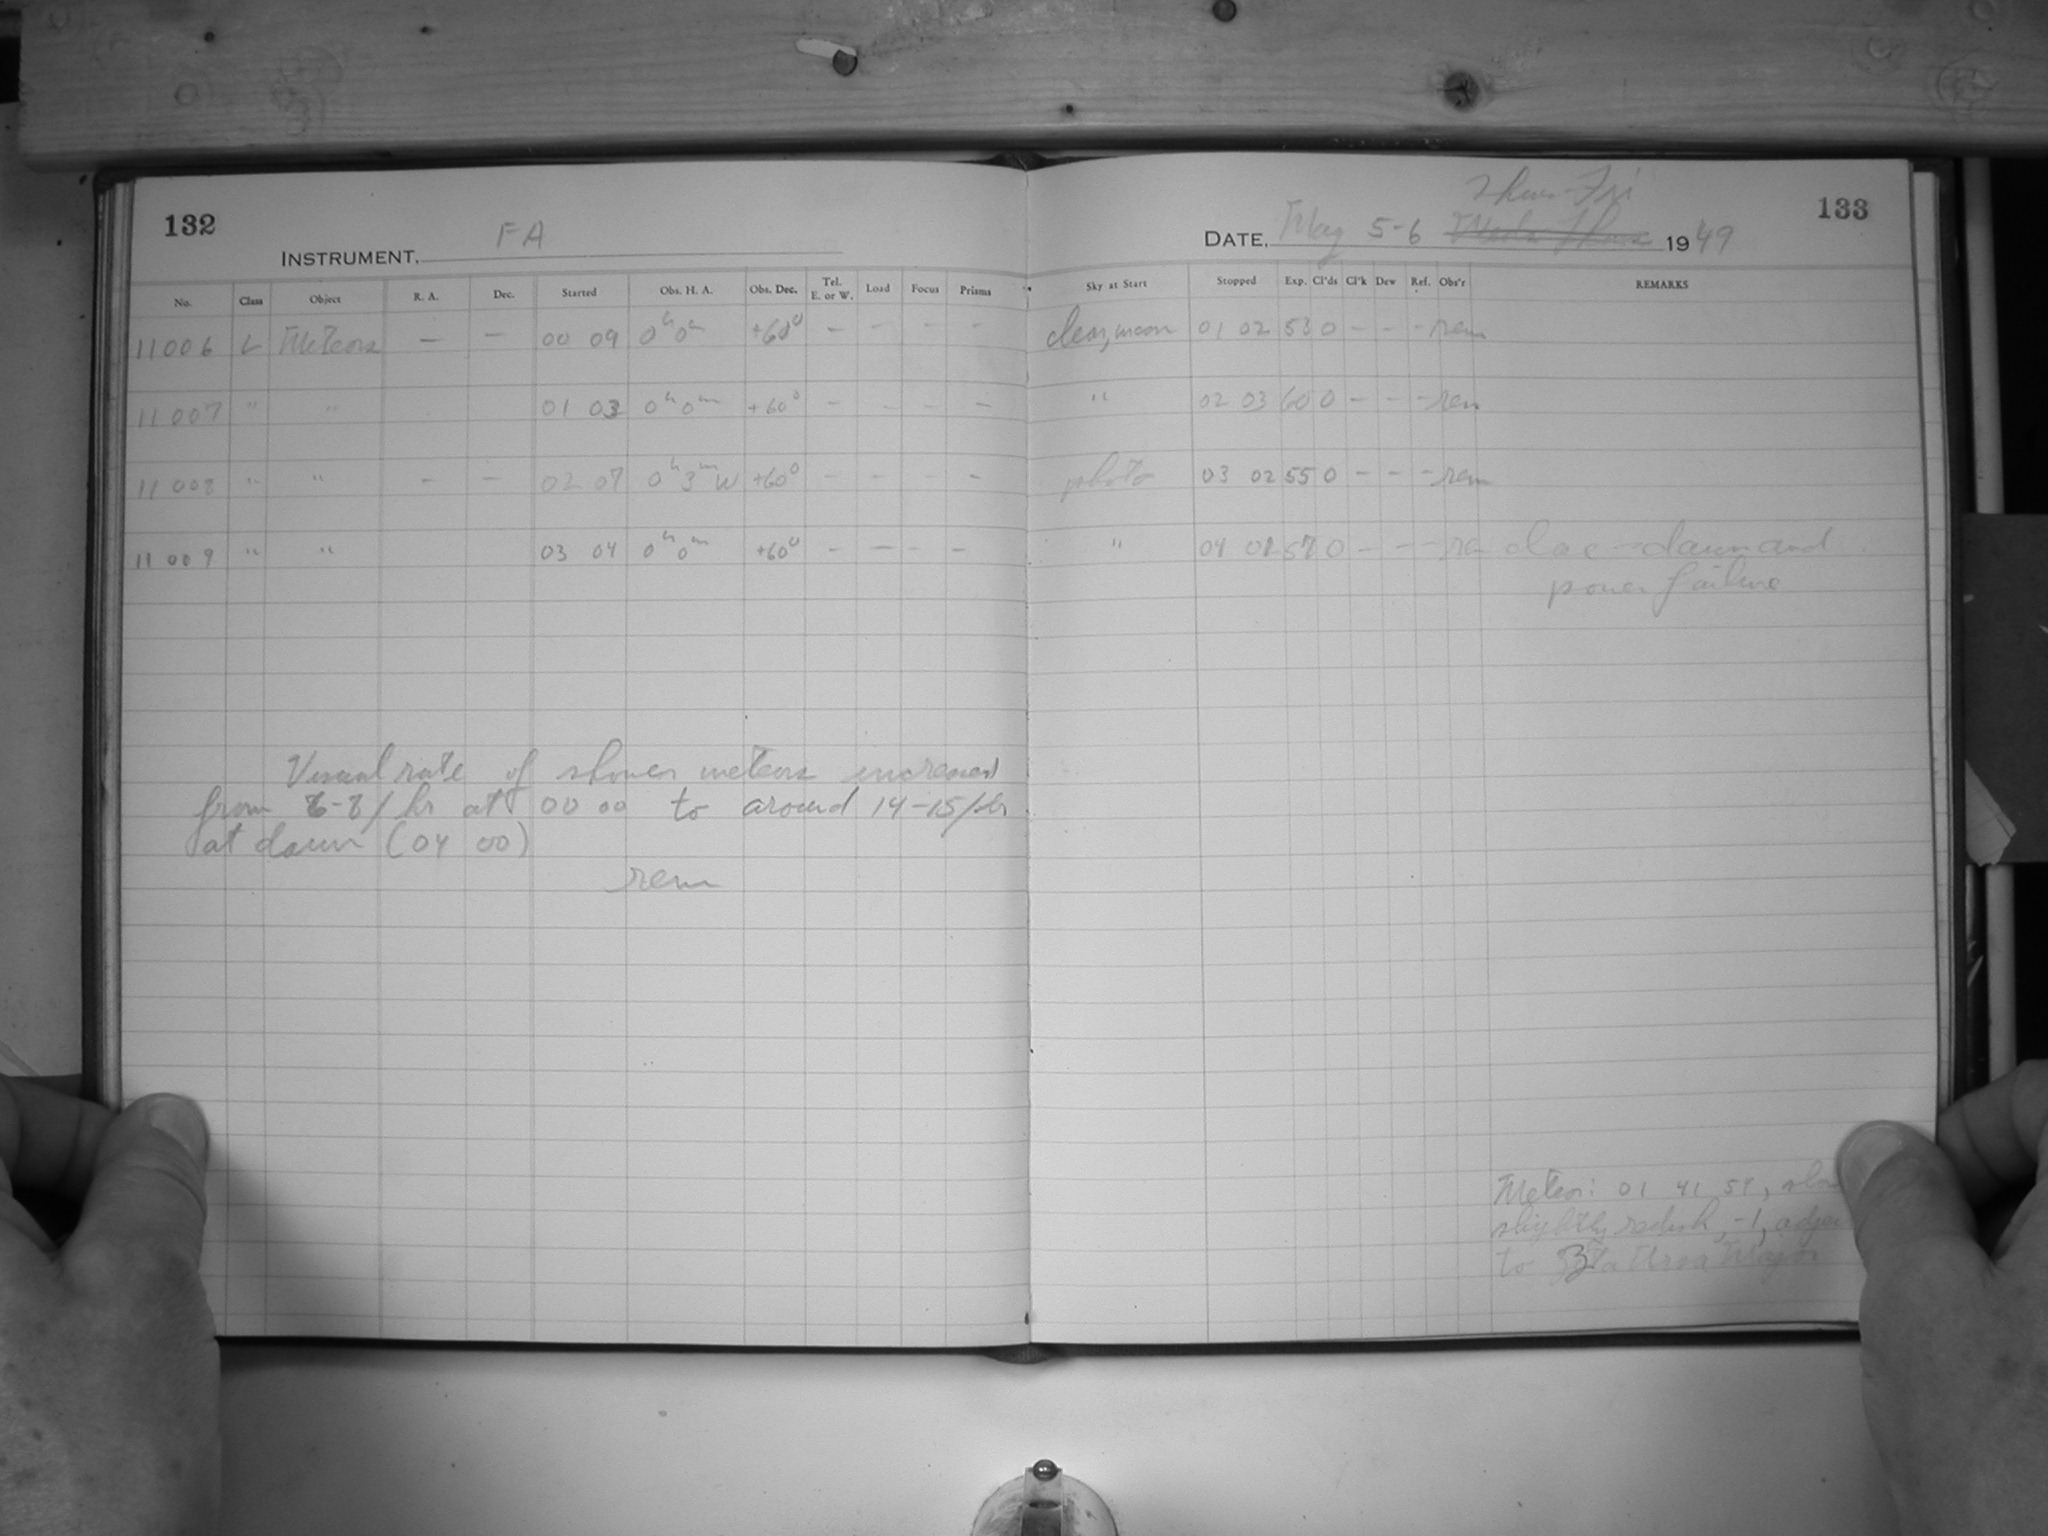 132
INSTRUMENT. FA
No. Class Object R. A. Dec. Started Obs. H. A. Obs. Dec. Tel. E. or W. Load Focus Prisms
11006 L Meteors — — 00 09 0h 0m +60° — — — —
11007 " " 01 03 0h 0m +60° — — — —
11008 " " — — 02 07 0h 3m W +60° — — — —
11009 " " 03 04 0h 0m +60° — — — —
Visual rate of shower meteors increased
from 6-8/hr at 00 00 to around 14-15/hr
at dawn (04 00)
rem
133
Thur-Fri
DATE, May 5-6 Weds Thurs 1949
Sky at Start Stopped Exp. Cl'ds Cl'k Dew Ref. Obs'r REMARKS
clear, moon 01 02 53 0 - - - rem
" 02 03 60 0 - - - rem
photo 03 02 55 0 - - - rem
" 04 01 57 0 - - - rem dawn and
power failure
Meteor: 01 41 54,
slightly redish, -1,
to Ursa Major